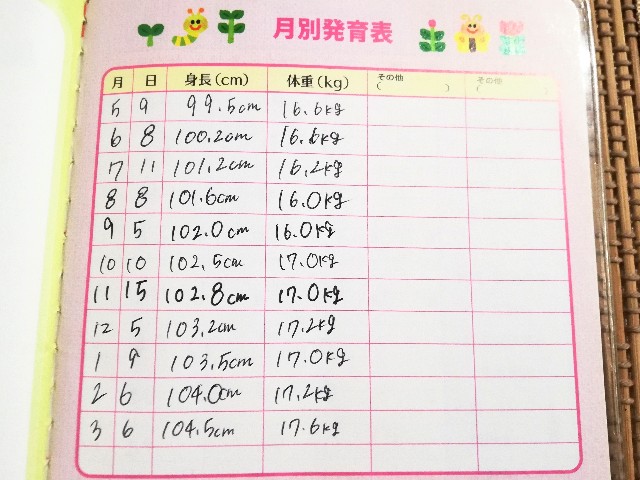 月別発育表
月 日 身長(cm) 体重(kg) その他( ) その他( )
5 9 99.5cm 16.6kg
6 8 100.2cm 16.6kg
7 11 101.2cm 16.2kg
8 8 101.6cm 16.0kg
9 5 102.0cm 16.0kg
10 10 102.5cm 17.0kg
11 15 102.8cm 17.0kg
12 5 103.2cm 17.2kg
1 9 103.5cm 17.0kg
2 6 104.0cm 17.2kg
3 6 104.5cm 17.6kg